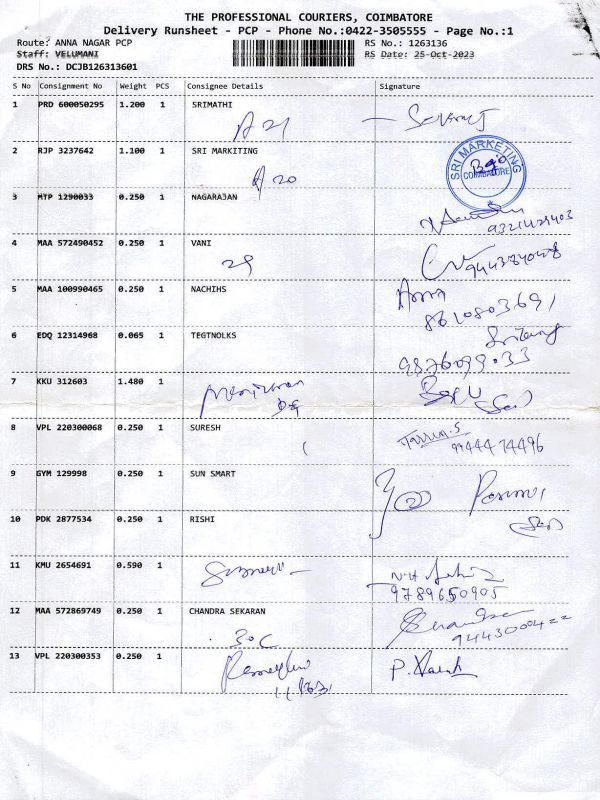 THE PROFESSIONAL COURIERS, COIMBATORE
Delivery Runsheet - PCP - Phone No.:0422-3505555 - Page No.:1
Route: ANNA NAGAR PCP RS No.: 1263136
Staff: VELUMANI RS Date: 25-Oct-2023
DRS No.: DCJB126313601
S No Consignment No Weight PCS Consignee Details Signature
1 PRD 600050295 1.200 1 SRIMATHI
A 21
2 RJP 3237642 1.100 1 SRI MARKITING
SRI MARKETING
COIMBATORE
A 20
3 MTP 1290033 0.250 1 NAGARAJAN
4 MAA 572490452 0.250 1 VANI
29
5 MAA 100990465 0.250 1 NACHIHS
Anna
8610803691
6 EDQ 12314968 0.065 1 TEGTNOLKS
7 KKU 312603 1.480 1
8 VPL 220300068 0.250 1 SURESH
9444474496
9 GYM 129998 0.250 1 SUN SMART
10 PDK 2877534 0.250 1 RISHI
11 KMU 2654691 0.590 1
9789650905
12 MAA 572869749 0.250 1 CHANDRA SEKARAN
30C
9443000422
13 VPL 220300353 0.250 1